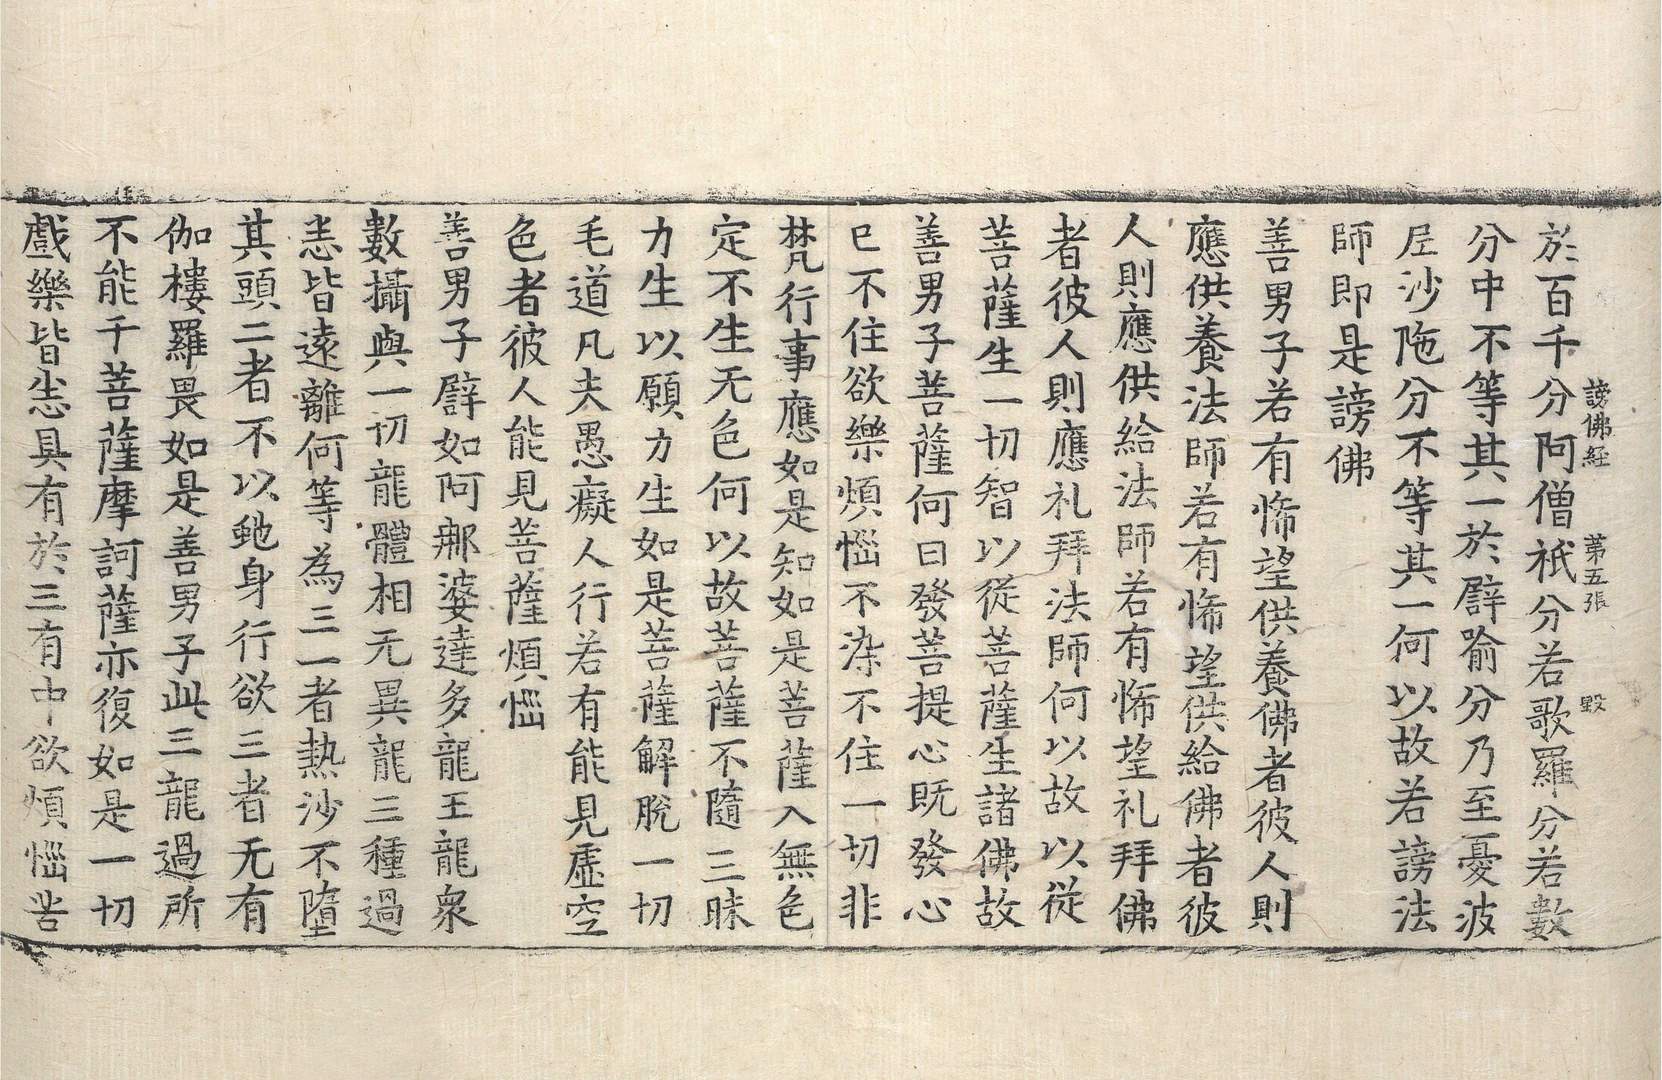 謗佛経 第五張 毀
於百千分阿僧祇分若歌羅分若數
分中不等其一於譬喻分乃至憂波
尼沙陁分不等其一何以故若謗法
師即是謗佛
善男子若有悕望供養佛者彼人則
應供養法師若有悕望供給佛者彼
人則應供給法師若有悕望礼拜佛
者彼人則應礼拜法師何以故以從
菩薩生一切智以從菩薩生諸佛故
善男子菩薩何曰發菩提心既發心
已不住欲樂煩惱不染不住一切非
梵行事應如是知如是菩薩入無色
定不生无色何以故菩薩不隨三昧
力生以願力生如是菩薩解脫一切
毛道凡夫愚癡人行若有能見虛空
色者彼人能見菩薩煩惱
善男子譬如阿那婆達多龍王龍衆
數攝與一切龍體相无異龍三種過
恚皆遠離何等為三一者熱沙不墮
其頭二者不以虵身行欲三者无有
伽樓羅畏如是善男子此三龍過所
不能千菩薩摩訶薩亦復如是一切
戲樂皆恚具有於三有中欲煩惱苦